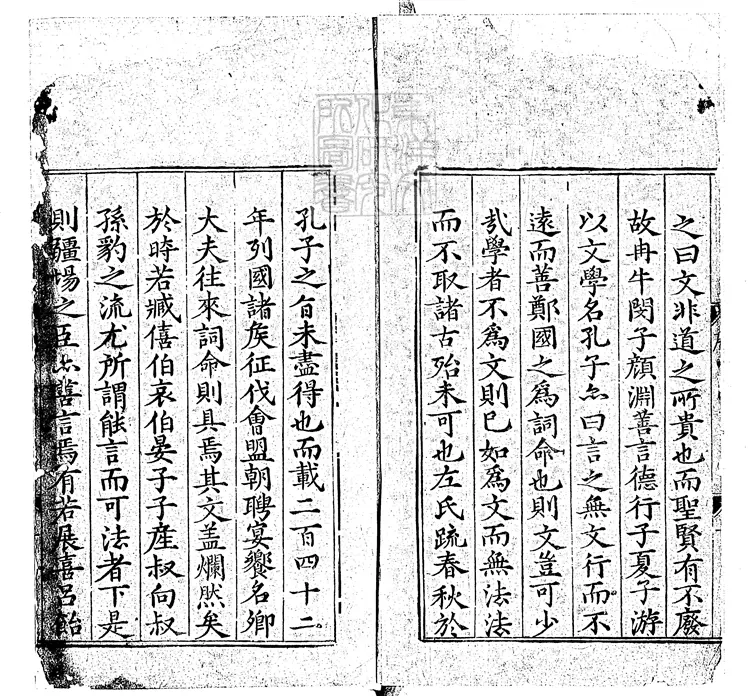 之曰文非道之所貴也而聖賢有不廢
故冉牛閔子顏淵善言德行子夏子游
以文學名孔子亦曰言之無文行而不
遠而善鄭國之爲詞命也則文豈可少
㢤學者不爲文則已如爲文而無法法
而不取諸古殆未可也左氏疏春秋於
孔子之旨未盡得也而載二百四十二
年列國諸侯征伐會盟朝聘宴饗名卿
大夫往來詞命則具焉其文盖爛然矣
於時若臧僖伯哀伯晏子子產叔向叔
孫豹之流尤所謂能言而可法者下是
則疆埸之臣亦善言焉有若展喜呂飴